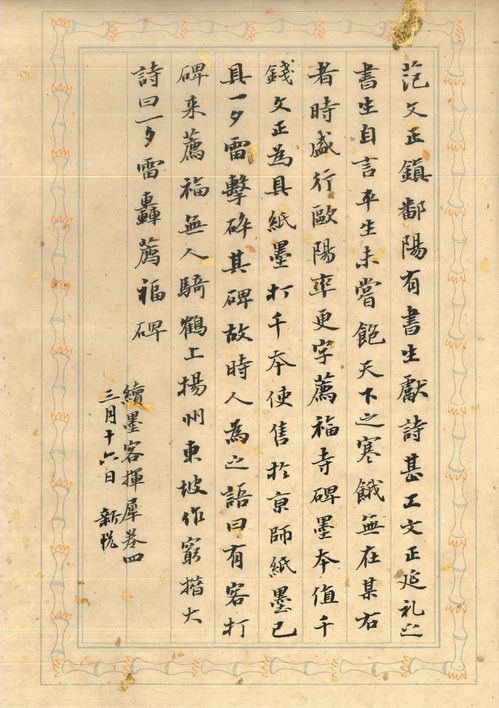 范文正鎮鄱陽有書生獻詩甚工文正延礼之
書生自言平生未嘗飽天下之寒餓無在某右
者時盛行歐陽率更字薦福寺碑墨本值千
錢文正為具紙墨打千本使售於京師紙墨已
具一夕雷擊碎其碑故時人為之語曰有客打
碑来薦福無人騎鶴上揚州東坡作窮措大
詩曰一夕雷轟薦福碑
續墨客揮犀卷四
三月十六日 新悦